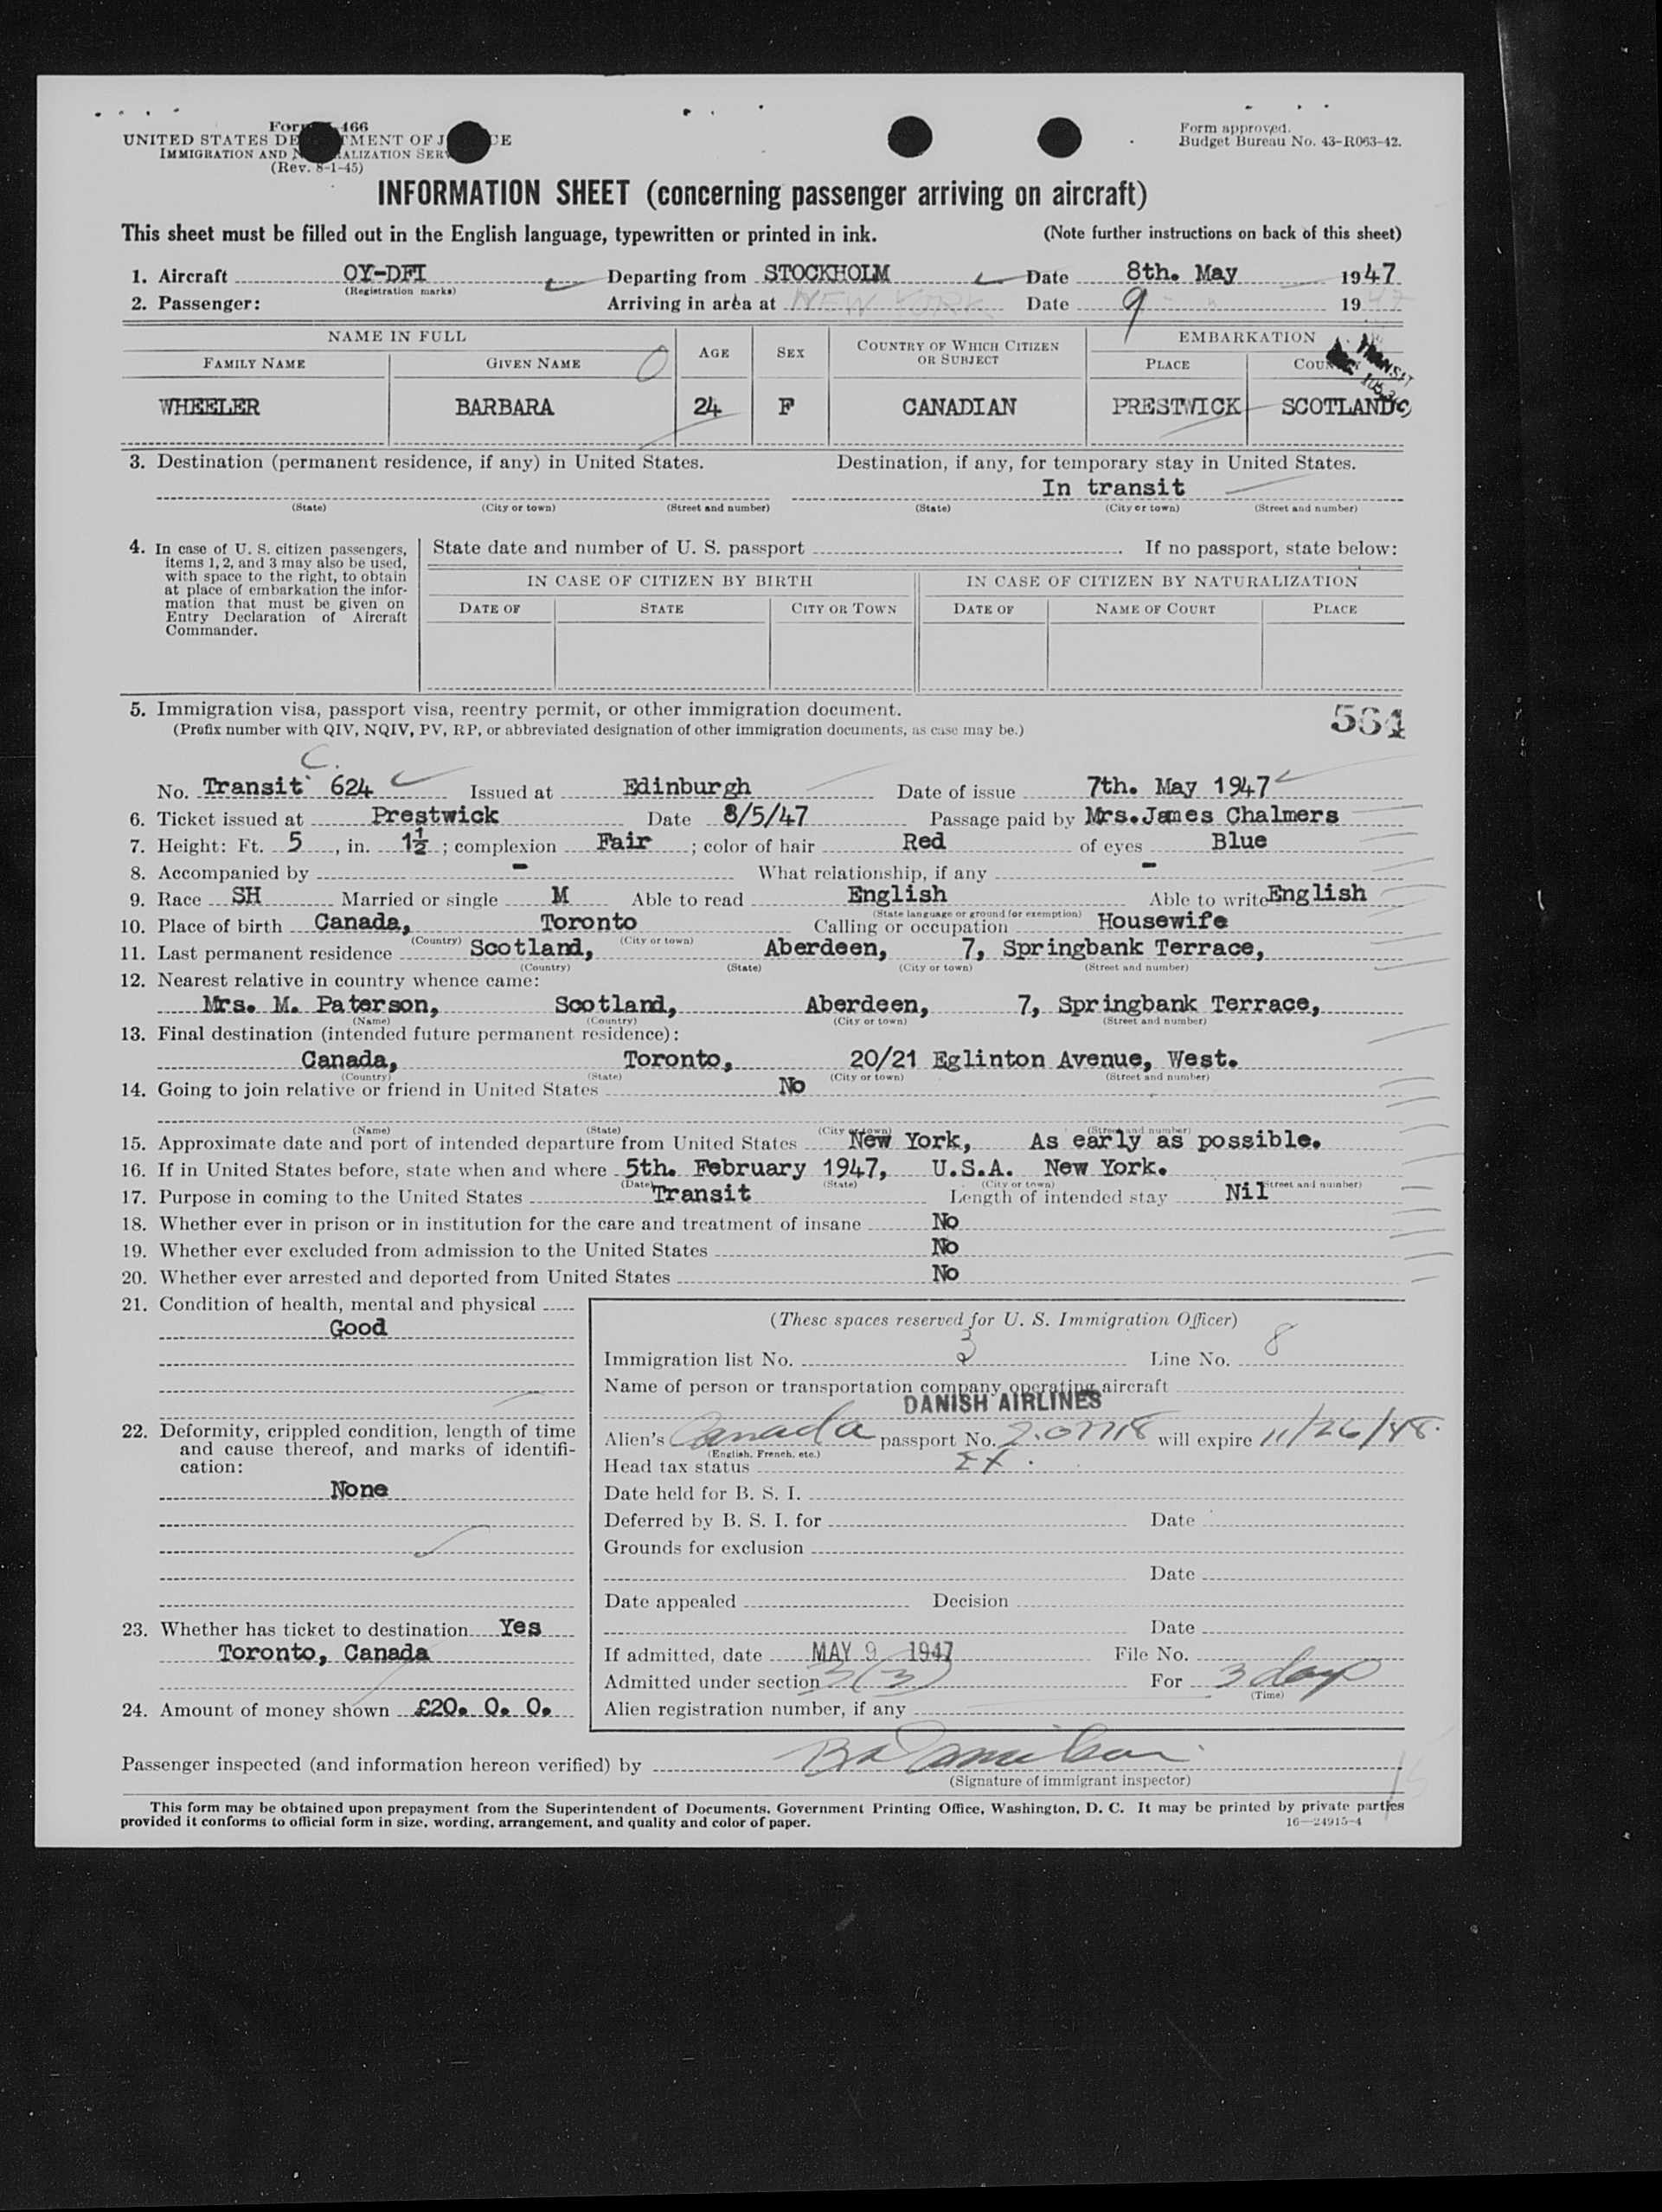 Form 466
UNITED STATES DE MENT OF J CE
IMMIGRATION AND N ALIZATION SER
(Rev. 8-1-45)
Form approved.
Budget Bureau No. 43-R063-42.
INFORMATION SHEET (concerning passenger arriving on aircraft)
This sheet must be filled out in the English language, typewritten or printed in ink. (Note further instructions on back of this sheet)
1. Aircraft OY-DFI Departing from STOCKHOLM Date 8th. May 1947
(Registration marks)
2. Passenger: Arriving in area at NEW YORK Date 9 - " 1947
NAME IN FULL AGE SEX COUNTRY OF WHICH CITIZEN OR SUBJECT EMBARKATION
FAMILY NAME GIVEN NAME PLACE COUNTRY
TRANSIT
WHEELER BARBARA 24 F CANADIAN PRESTWICK SCOTLAND
3. Destination (permanent residence, if any) in United States. Destination, if any, for temporary stay in United States.
In transit
(State) (City or town) (Street and number) (State) (City or town) (Street and number)
4. In case of U. S. citizen passengers, items 1, 2, and 3 may also be used, with space to the right, to obtain at place of embarkation the information that must be given on Entry Declaration of Aircraft Commander.
State date and number of U. S. passport . If no passport, state below:
IN CASE OF CITIZEN BY BIRTH IN CASE OF CITIZEN BY NATURALIZATION
DATE OF STATE CITY OR TOWN DATE OF NAME OF COURT PLACE
5. Immigration visa, passport visa, reentry permit, or other immigration document. 564
(Prefix number with QIV, NQIV, PV, RP, or abbreviated designation of other immigration documents, as case may be.)
C.
No. Transit 624 Issued at Edinburgh Date of issue 7th. May 1947
6. Ticket issued at Prestwick Date 8/5/47 Passage paid by Mrs.James Chalmers
7. Height: Ft. 5, in. 1½; complexion Fair; color of hair Red of eyes Blue
8. Accompanied by - What relationship, if any -
9. Race SH Married or single M Able to read English Able to write English
(State language or ground for exemption)
10. Place of birth Canada, Toronto Calling or occupation Housewife
(Country) (City or town)
11. Last permanent residence Scotland, Aberdeen, 7, Springbank Terrace,
(Country) (State) (City or town) (Street and number)
12. Nearest relative in country whence came:
Mrs. M. Paterson, Scotland, Aberdeen, 7, Springbank Terrace,
(Name) (Country) (City or town) (Street and number)
13. Final destination (intended future permanent residence):
Canada, Toronto, 20/21 Eglinton Avenue, West.
(Country) (State) (City or town) (Street and number)
14. Going to join relative or friend in United States No
(Name) (State) (City or town) (Street and number)
15. Approximate date and port of intended departure from United States New York, As early as possible.
16. If in United States before, state when and where 5th. February 1947, U.S.A. New York.
(Date) (State) (City or town) (Street and number)
17. Purpose in coming to the United States Transit Length of intended stay Nil
18. Whether ever in prison or in institution for the care and treatment of insane No
19. Whether ever excluded from admission to the United States No
20. Whether ever arrested and deported from United States No
21. Condition of health, mental and physical
Good
22. Deformity, crippled condition, length of time and cause thereof, and marks of identification:
None
23. Whether has ticket to destination Yes
Toronto, Canada
24. Amount of money shown £20. 0. 0.
(These spaces reserved for U. S. Immigration Officer)
Immigration list No. 3 Line No. 8
Name of person or transportation company operating aircraft
DANISH AIRLINES
Alien's Canada passport No. will expire 11/26/48.
(English, French, etc.)
Head tax status
Date held for B. S. I.
Deferred by B. S. I. for Date
Grounds for exclusion
Date
Date appealed Decision
Date
If admitted, date MAY 9 1947 File No.
Admitted under section 3(3) For 3 days
(Time)
Alien registration number, if any
Passenger inspected (and information hereon verified) by
(Signature of immigrant inspector)
This form may be obtained upon prepayment from the Superintendent of Documents, Government Printing Office, Washington, D. C. It may be printed by private parties
provided it conforms to official form in size, wording, arrangement, and quality and color of paper. 16—24915-4